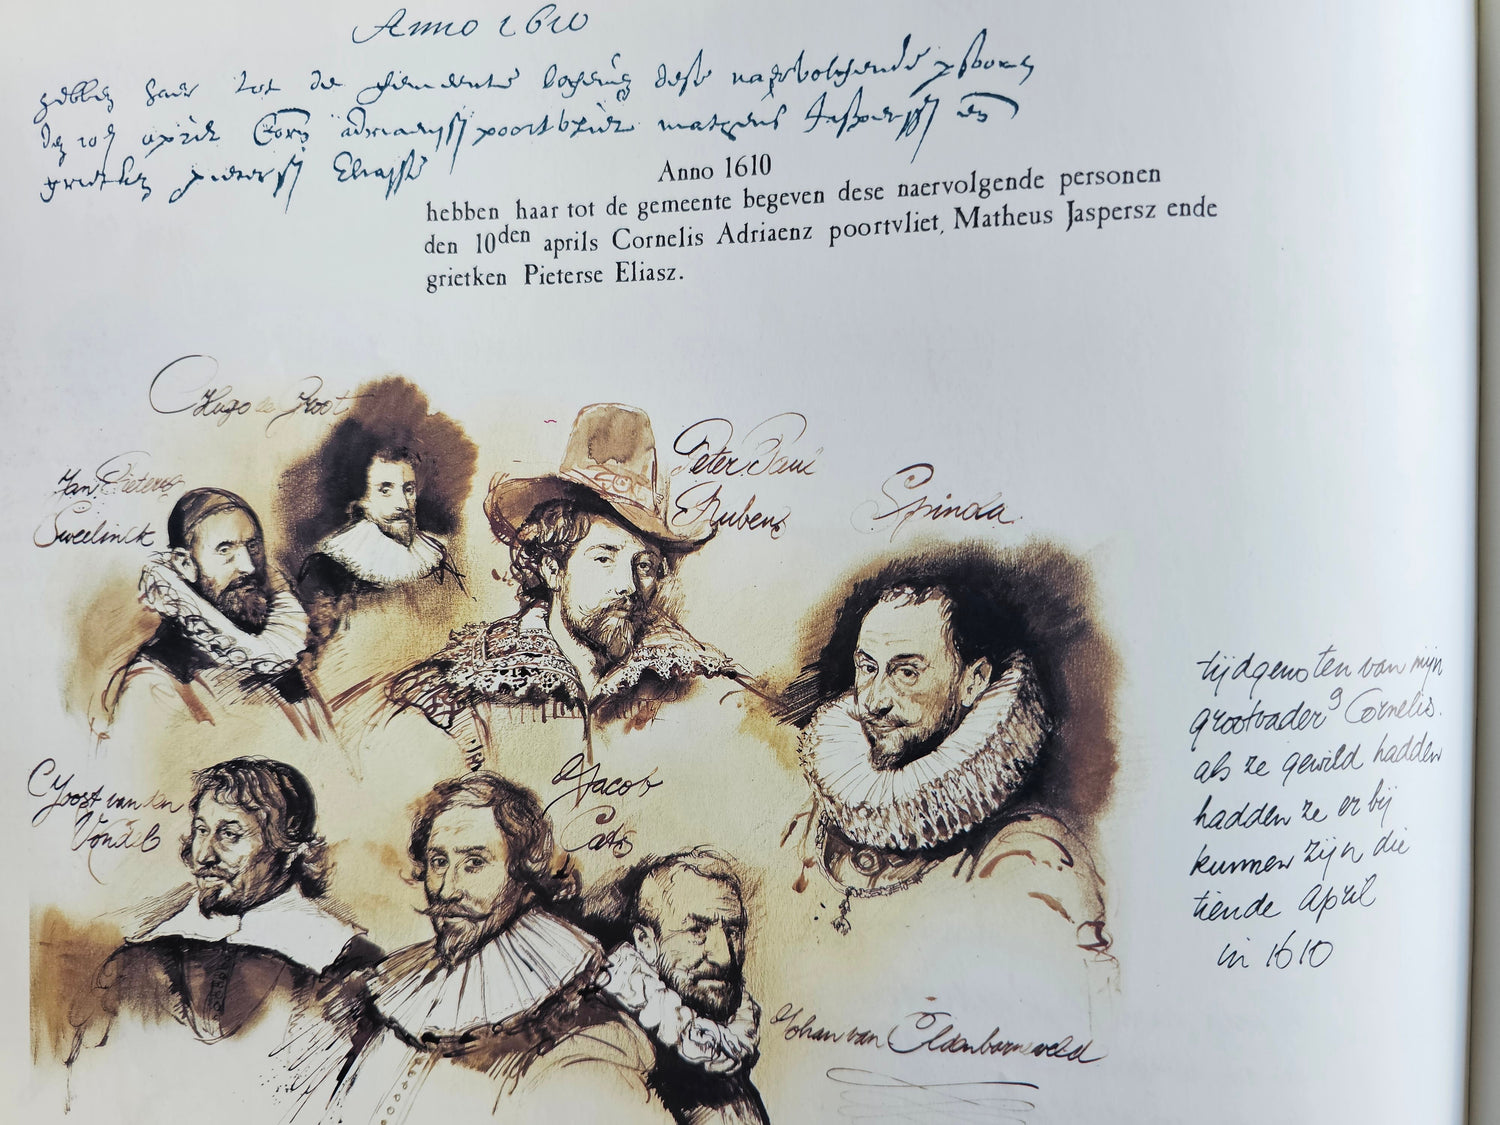 Anno 1610
hebben haer tot de gemeente begeven dese naervolgende persoonen
den 10en april Corn adriaensz poortvliet matheus Jaspersz en
grietken pietersz Eliassz
Anno 1610
hebben haar tot de gemeente begeven dese naervolgende personen
den 10den aprils Cornelis Adriaenz poortvliet, Matheus Jaspersz ende
grietken Pieterse Eliasz.
Hugo de Groot
Jan Pieters
Sweelinck
Peter Paul
Rubens
Spinola
Joost van den
Vondel
Jacob
Cats
Johan van Oldenbarneveld
tijdgenoten van mijn
grootvader9 Cornelis.
als ze gewild hadden
hadden ze er bij
kunnen zijn die
tiende April
in 1610